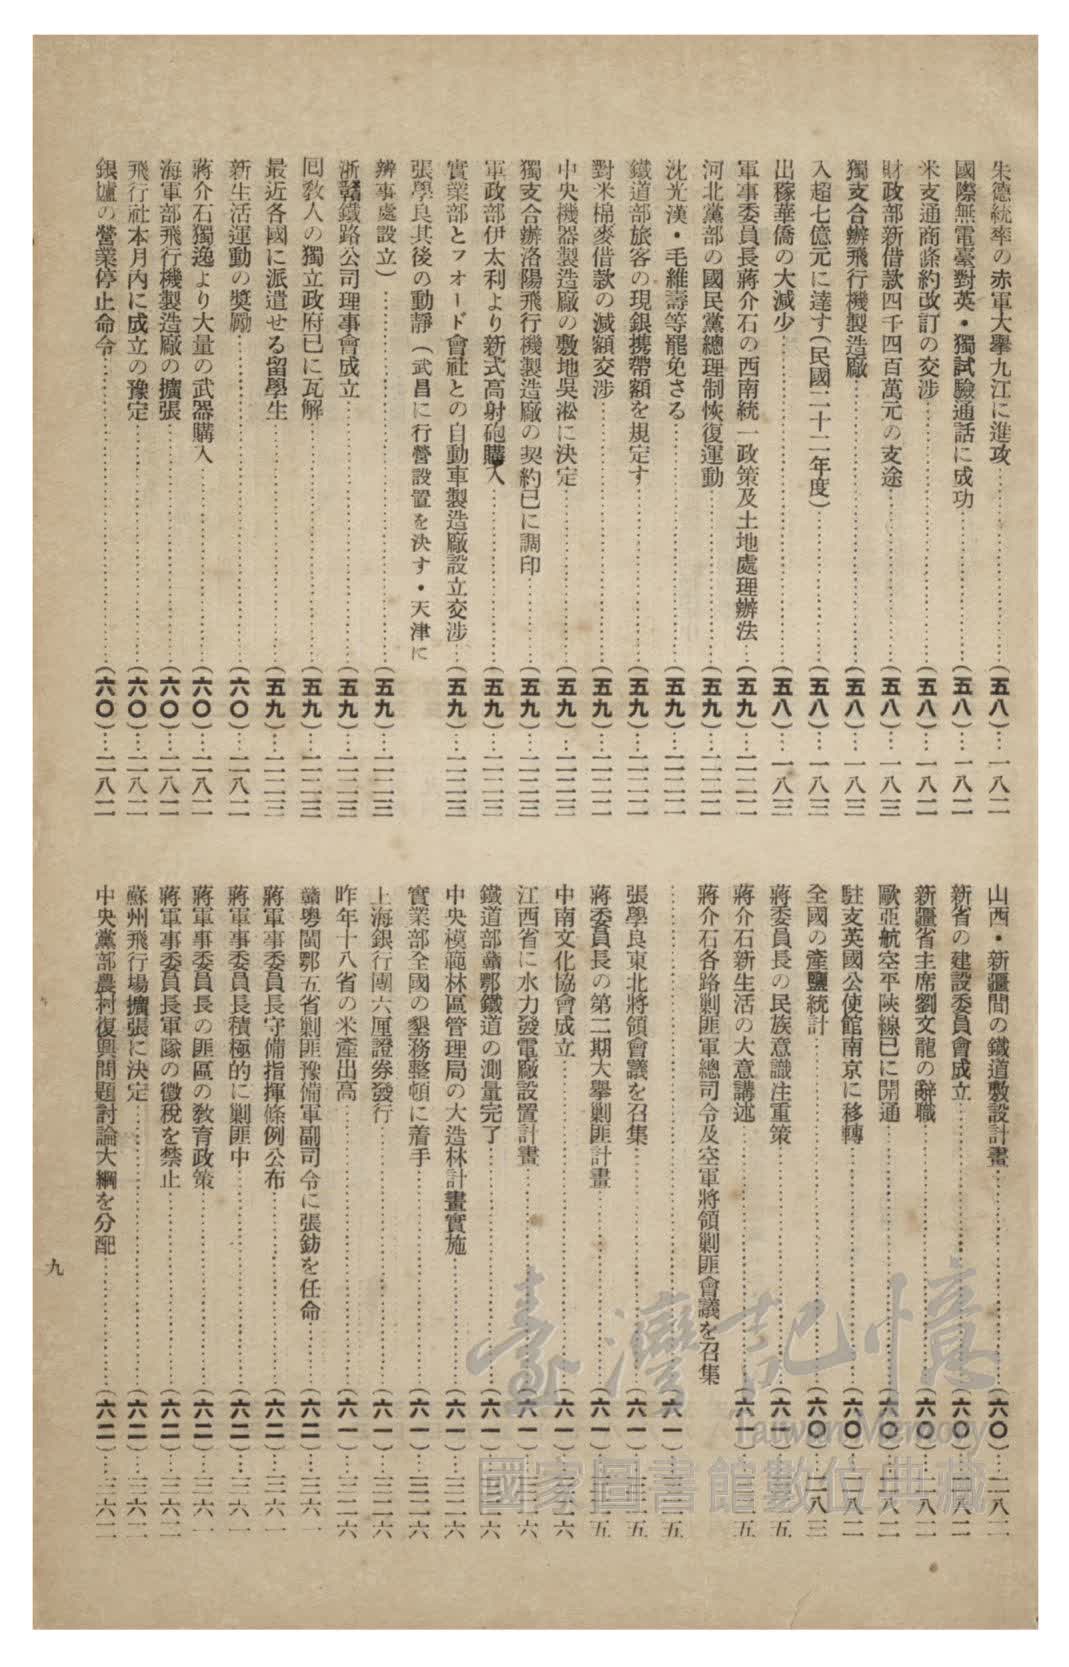 朱德統率の赤軍大擧九江に進攻……(五八)…一八二
國際無電臺對英・獨試驗通話に成功……(五八)…一八二
米支通商條約改訂の交涉……(五八)…一八二
財政部新借款四千四百萬元の支途……(五八)…一八三
獨支合辦飛行機製造廠……(五八)…一八三
入超七億元に達す(民國二十二年度)……(五八)…一八三
出稼華僑の大減少……(五八)…一八三
軍事委員長蔣介石の西南統一政策及土地處理辦法…(五九)…二二二
河北黨部の國民黨總理制恢復運動……(五九)…二二二
沈光漢・毛維壽等罷免さる……(五九)…二二二
鐵道部旅客の現銀携帶額を規定す……(五九)…二二二
對米棉麥借款の減額交涉……(五九)…二二二
中央機器製造廠の敷地吳淞に決定……(五九)…二二三
獨支合辦洛陽飛行機製造廠の契約已に調印……(五九)…二二三
軍政部伊太利より新式高射砲購入……(五九)…二二三
實業部とフオード會社との自動車製造廠設立交涉…(五九)…二二三
張學良其後の動靜(武昌に行營設置を決す・天津に
辨事處設立)……(五九)…二二三
浙贛鐵路公司理事會成立……(五九)…二二三
回敎人の獨立政府已に瓦解……(五九)…二二三
最近各國に派遣せる留學生……(五九)…二二三
新生活運動の獎勵……(六〇)…二八一
蔣介石獨逸より大量の武器購入……(六〇)…二八二
海軍部飛行機製造廠の擴張……(六〇)…二八二
飛行社本月內に成立の豫定……(六〇)…二八二
銀爐の營業停止命令……(六〇)…二八二
山西・新疆間の鐵道敷設計畫……(六〇)…二八二
新省の建設委員會成立……(六〇)…二八二
新疆省主席劉文龍の辭職……(六〇)…二八二
歐亞航空平陝線已に開通……(六〇)…二八二
駐支英國公使館南京に移轉……(六〇)…二八二
全國の產鹽統計……(六〇)…二八三
蔣委員長の民族意識注重策……(六一)…三二五
蔣介石新生活の大意講述……(六一)…三二五
蔣介石各路剿匪軍總司令及空軍將領剿匪會議を召集
……(六一)…三二五
張學良東北將領會議を召集……(六一)…三二五
蔣委員長の第二期大擧剿匪計畫……(六一)…三二五
中南文化協會成立……(六一)…三二六
江西省に水力發電廠設置計畫……(六一)…三二六
鐵道部贛鄂鐵道の測量完了……(六一)…三二六
中央模範林區管理局の大造林計畫實施……(六一)…三二六
實業部全國の墾務整頓に着手……(六一)…三二六
上海銀行團六厘證券發行……(六一)…三二六
昨年十八省の米產出高……(六一)…三二六
贛粵閩鄂五省剿匪豫備軍副司令に張鈁を任命……(六二)…三六一
蔣軍事委員長守備指揮條例公布……(六二)…三六一
蔣軍事委員長積極的に剿匪中……(六二)…三六一
蔣軍事委員長の匪區の敎育政策……(六二)…三六一
蔣軍事委員長軍隊の徵稅を禁止……(六二)…三六二
蘇州飛行場擴張に決定……(六二)…三六二
中央黨部農村復興問題討論大綱を分配……(六二)…三六二
九
臺灣記憶
Taiwan Memory
國家圖書館數位典藏